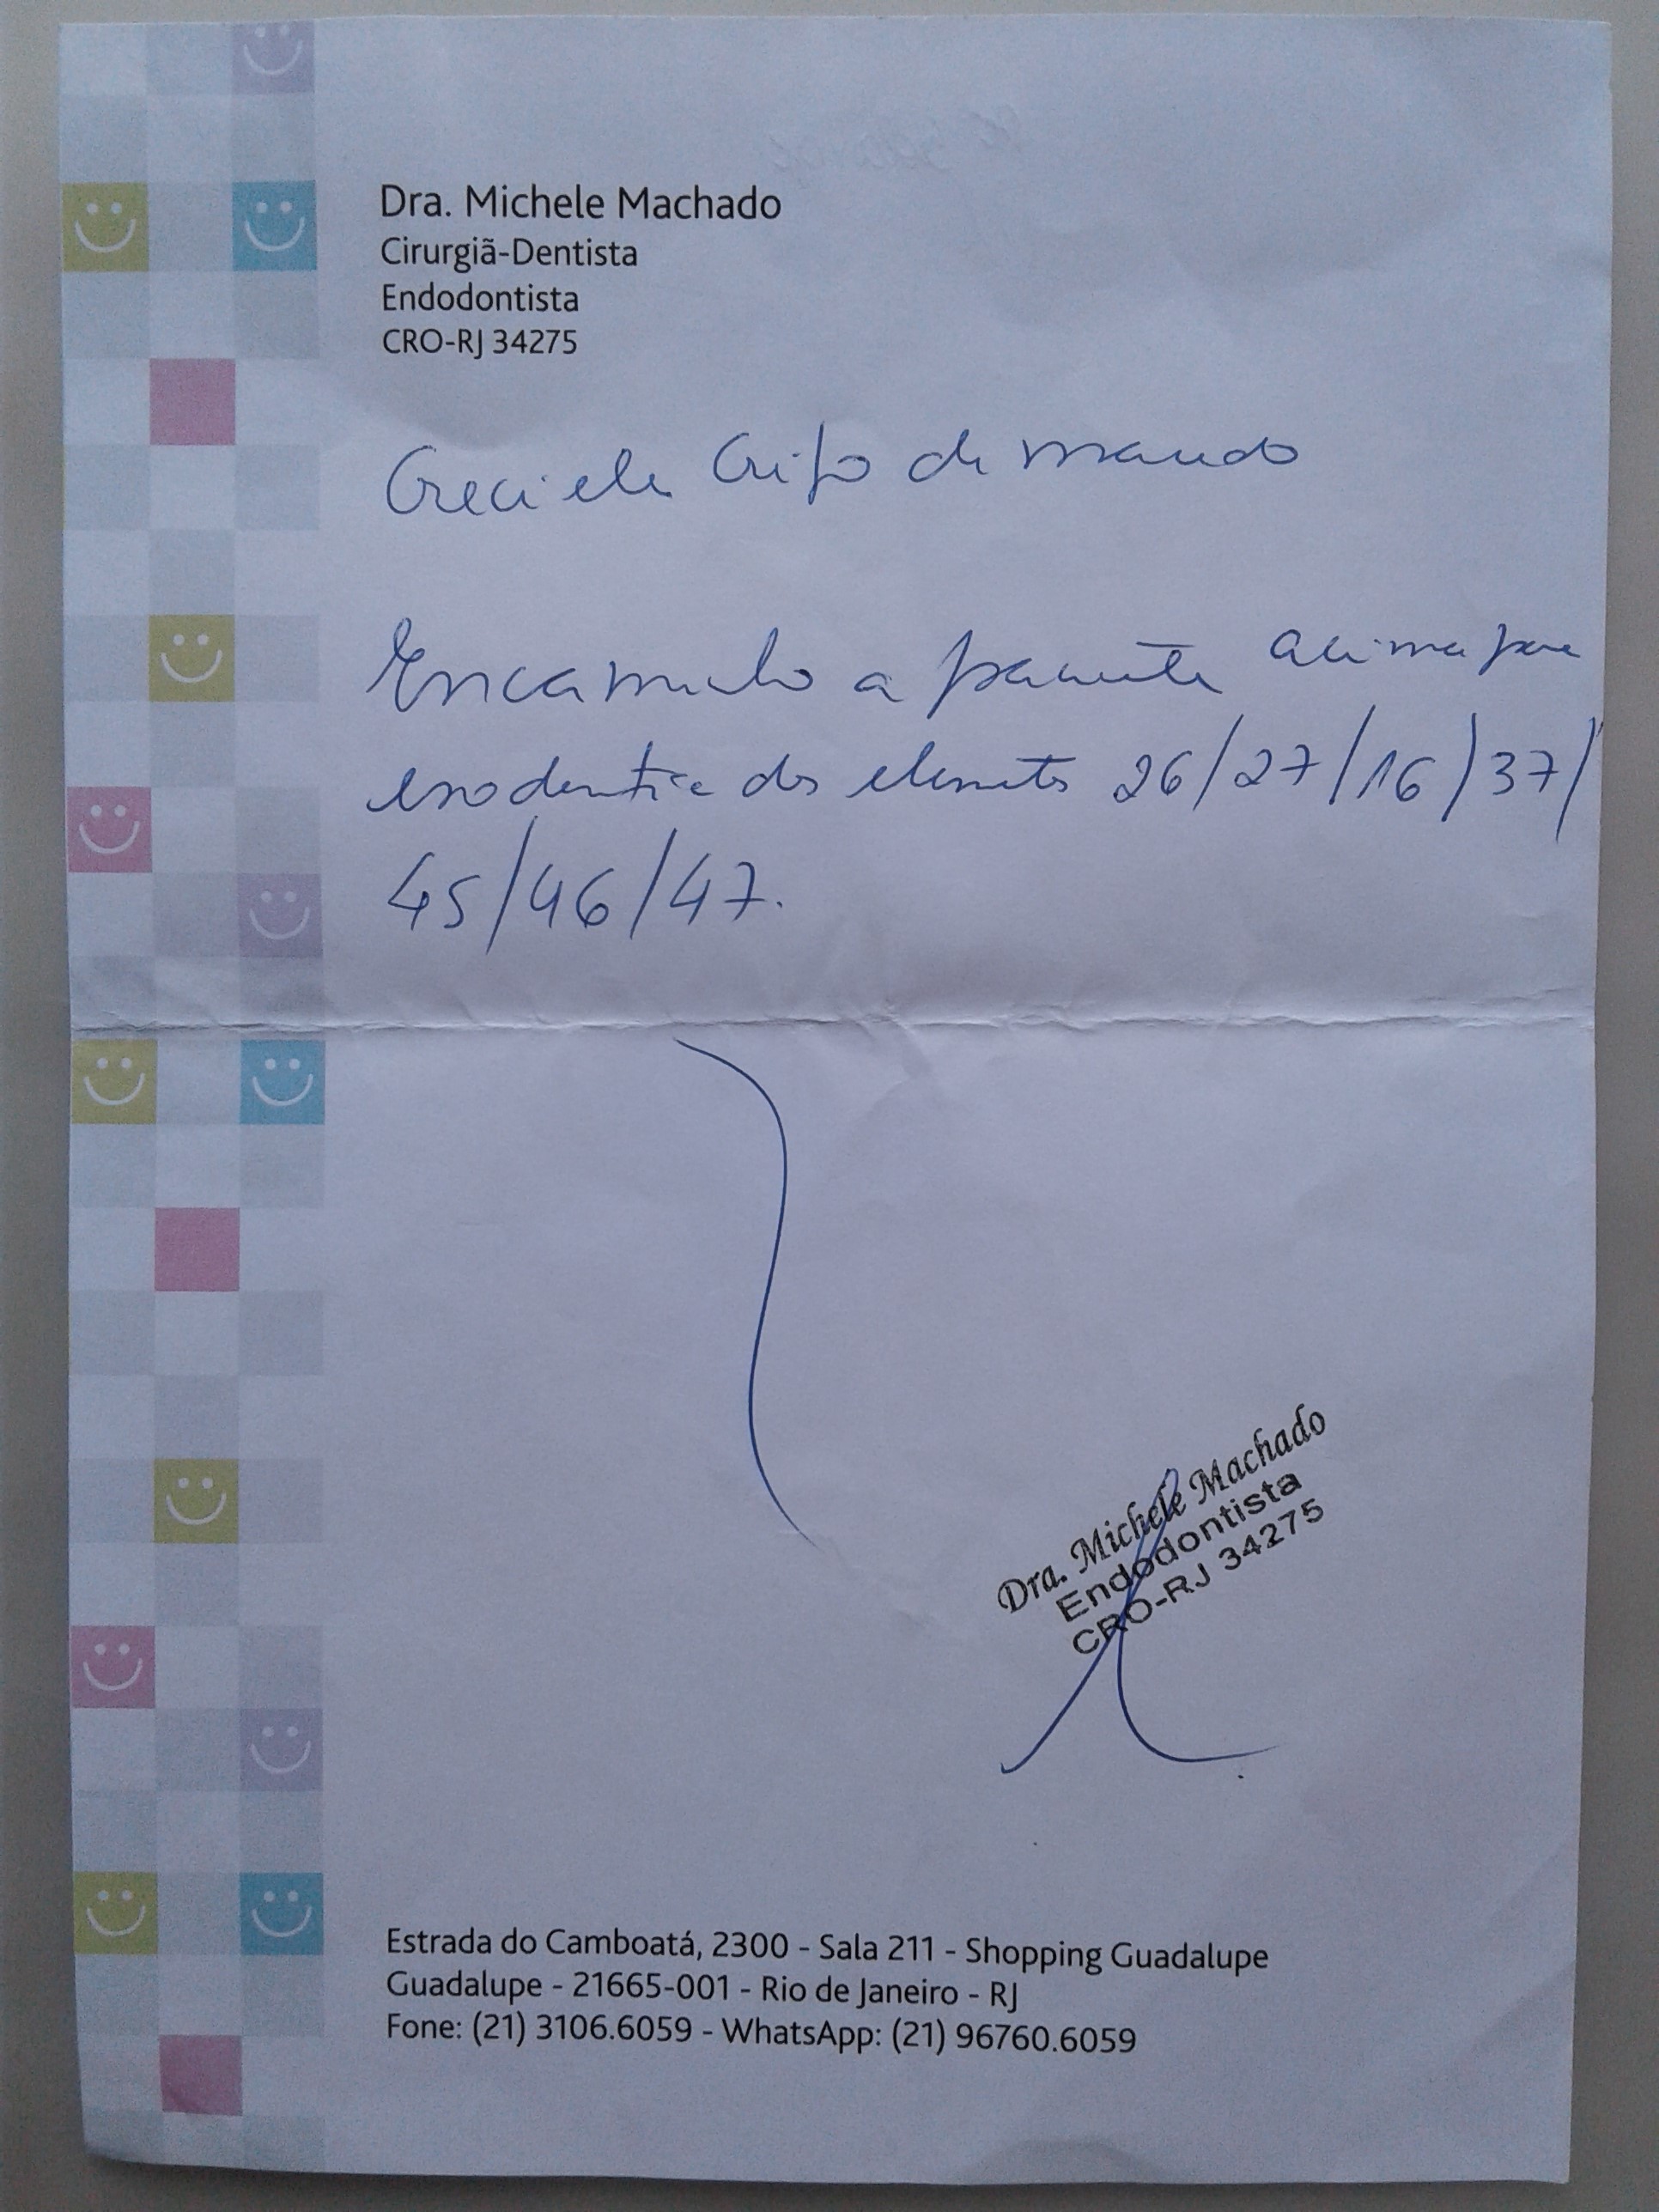 Dra. Michele Machado
Cirurgiã-Dentista
Endodontista
CRO-RJ 34275
Encaminho a paciente acima para
exodontia dos elementos 26/27/16/37/
45/46/47.
Dra. Michele Machado
Endodontista
CRO-RJ 34275
Estrada do Camboatá, 2300 - Sala 211 - Shopping Guadalupe
Guadalupe - 21665-001 - Rio de Janeiro - RJ
Fone: (21) 3106.6059 - WhatsApp: (21) 96760.6059